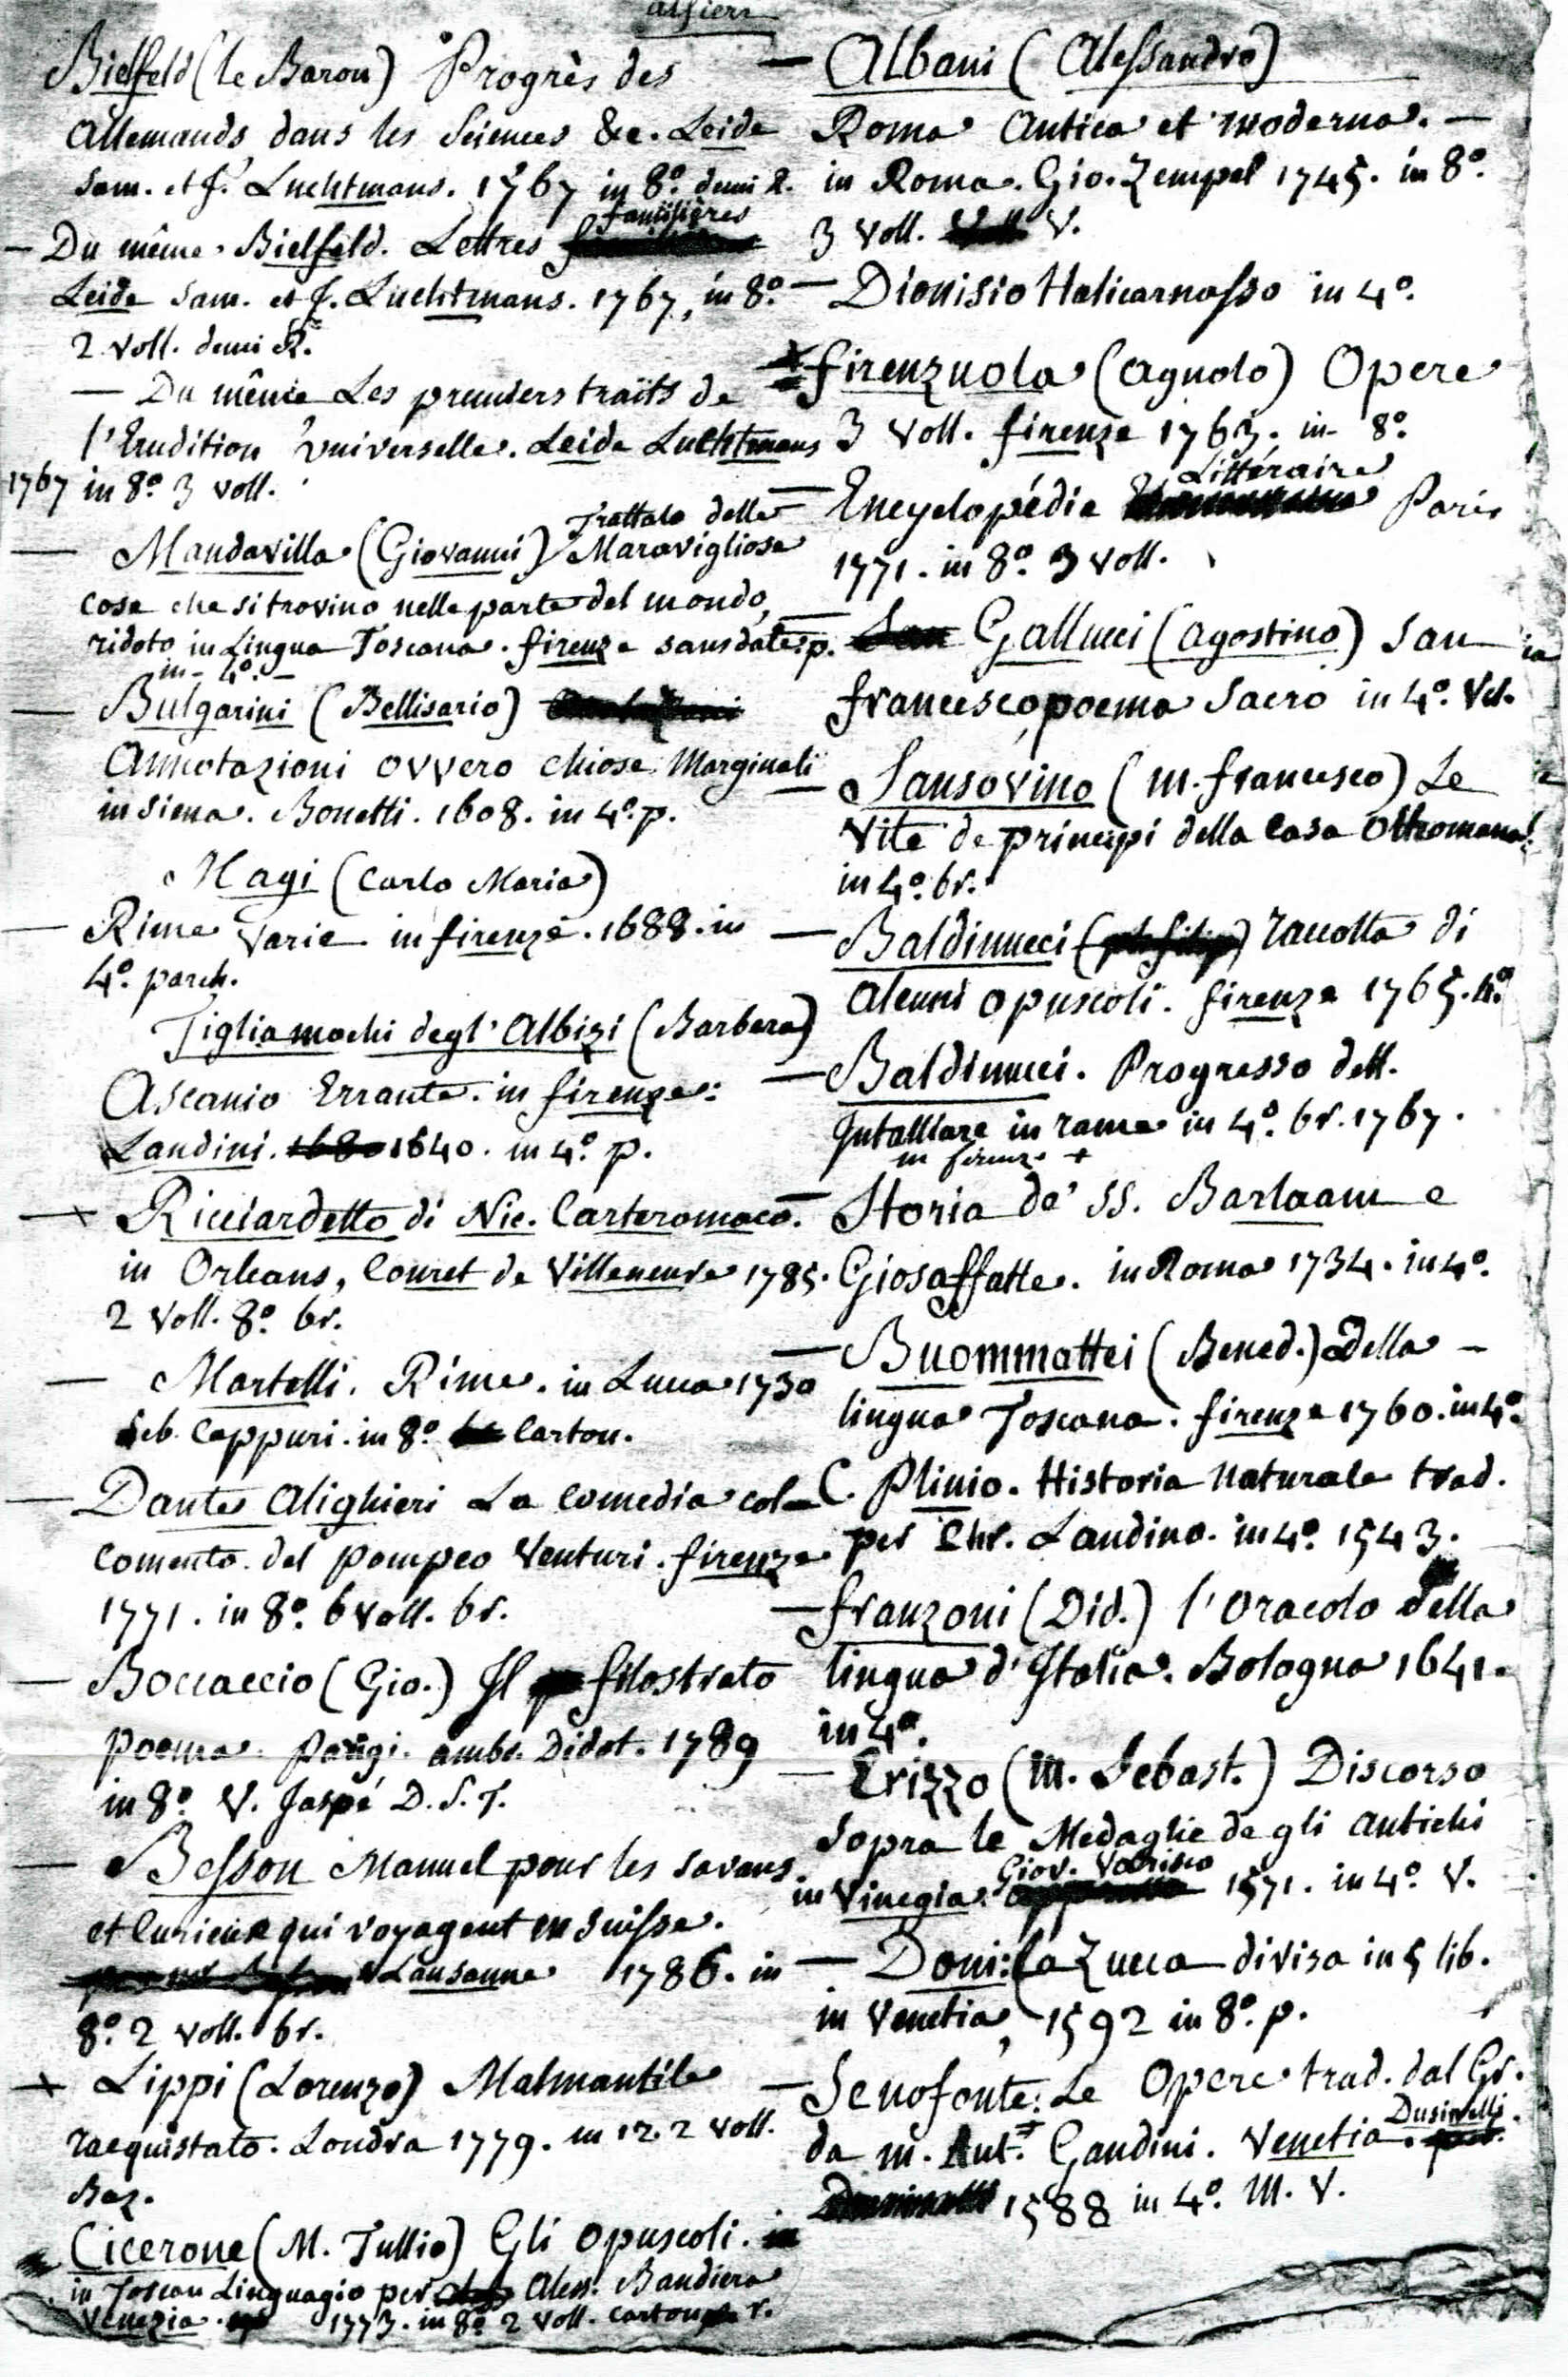 alfieri
Bielfeld (le Baron) Progrès des
Allemands dans les Sciences &c. Leide
Sam. et J. Luchtmans. 1767 in 8º. demi R.
familières
— Du même. Bielfeld. Lettres
Leide Sam. et J. Luchtmans. 1767, in 8º.
2 voll. demi R.
— Du même Les premiers traits de
l'Erudition Universelle. Leide Luchtmans
1767 in 8º. 3 voll.
Trattato delle
— Mandavilla (Giovanni) Maravigliose
cose che si trovino nelle parte del mondo,
ridoto in Lingua Toscana. firenze sans date. p.
in - 4º. -
— Bulgarini (Bellisario)
Annotazioni ovvero chiose Marginali
in Siena. Bonetti. 1608. in 4º. p.
Magi (Carlo Maria)
— Rime Varie in firenze. 1688. in
4º. parch.
Tigliamochi degl' Albizi (Barbera)
Ascanio Errante. in firenze.
Landini. 1680 1640. in 4º. p.
— Ricciardetto di Nic. Carteromaco.
in Orleans, Couret de Villeneuve 1785.
2 voll. 8º. br.
— Martelli. Rime. in Lucca 1730
Seb. Cappuri. in 8º. Carton.
— Dante Alighieri La Comedia col
Comento del Pompeo Venturi. firenze
1771. in 8º. 6 voll. br.
— Boccaccio (Gio.) Il filostrato
poema. Parigi. ambr. Didot. 1789
in 8º. V. Jaspé D. S. T.
— Besson Manuel pour les savans
et Curieux qui voyagent en Suisse.
Lausanne 1786. in
8º. 2 voll. br.
+ Lippi (Lorenzo) Malmantile
racquistato. Londra 1779. in 12. 2 voll.
Baz.
Cicerone (M. Tullio) Gli opuscoli. in
in Toscan Linguagio per Aless. Bandiera
Venezia. 1773. in 8º 2 voll. carton r.
— Albani (Alessandro)
Roma Antica et moderna. —
in Roma. Gio. Zempel 1745. in 8º.
3 voll. V.
— Dionisio Halicarnasso in 4º.
firenzuola (Agnolo) Opere
3 voll. firenze 1763. in 8º.
Littéraire
— Encyclopédie Paris
1771. in 8º. 3 voll.
— San Gallucci (Agostino) San
francesco, poema Sacro in 4º. Vel.
— Sansovino (M. francesco) Le
Vite de principi della Casa Ottomana
in 4º. br.
— Baldinucci raccolta di
alcuni opuscoli. firenze 1765. 4º.
— Baldinucci. Progresso dell.
Intalliare in rame in 4º. br. 1767.
in firenz. +
— Storia de' SS. Barlaam e
Giosaffatte. in Roma 1734. in 4º.
— Buommattei (Bened.) della —
lingua Toscana. firenze 1760. in 4º.
C. Plinio. Historia Naturale trad.
per Chr. Landino. in 4º. 1543.
— franzoni (Did.) l'oracolo della
lingua d'Italia. Bologna 1641.
in 4º.
— Erizzo (M. Sebast.) Discorso
sopra le Medaglie degli antichi
Giov. Varisco
in Vinegia. 1571. in 4º. V.
— Doni: la Zucca divisa in 5 lib.
in Venetia, 1592 in 8º. p.
— Senofonte: Le Opere trad. dal Gr.
Dusinelli.
da m. Ant. Gandini. Venetia.
1588 in 4º. M. V.